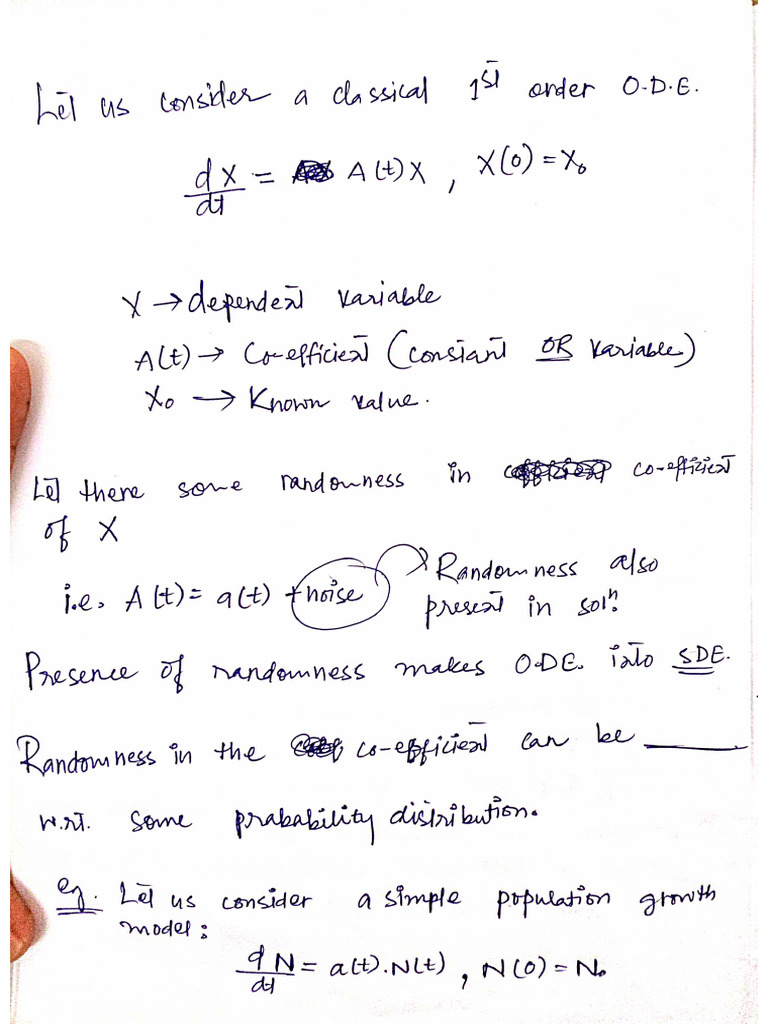 Let us consider a classical 1st order O.D.E.
dX/dt = A(t)X , X(0) = X₀
X → dependent variable
A(t) → Co-efficient (constant OR variable)
X₀ → Known value.
Let there some randomness in co-efficient
of X
i.e. A(t) = a(t) + noise → Randomness also
present in solⁿ.
Presence of randomness makes O.D.E. into SDE.
Randomness in the co-efficient can be ______
w.r.t. some prabability distribution.
eg. Let us consider a simple population growth
model:
dN/dt = a(t).N(t) , N(0) = N₀